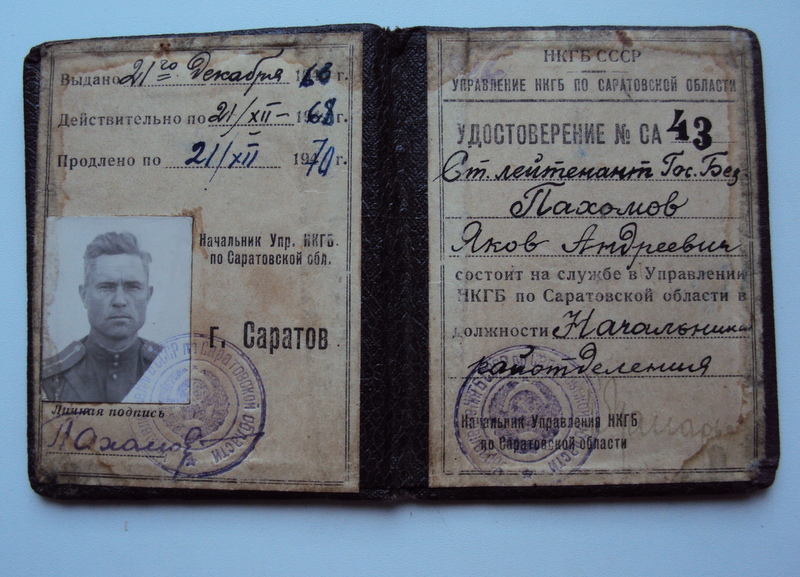 Выдано 21го Декабря г.
Действительно по 21/XII – 1968 г.
Продлено по 21/XII 1970 г.
Начальник Упр. НКГБ.
по Саратовской обл.
г. Саратов
Личная подпись
Пахомов
НКГБ СССР
УПРАВЛЕНИЕ НКГБ ПО САРАТОВСКОЙ ОБЛАСТИ
УДОСТОВЕРЕНИЕ № СА 43
Ст. лейтенант Гос. Без.
Пахомов
Яков Андреевич
состоит на службе в Управлении
НКГБ по Саратовской области в
должности Начальника
райотделения
Начальник Управления НКГБ
по Саратовской области